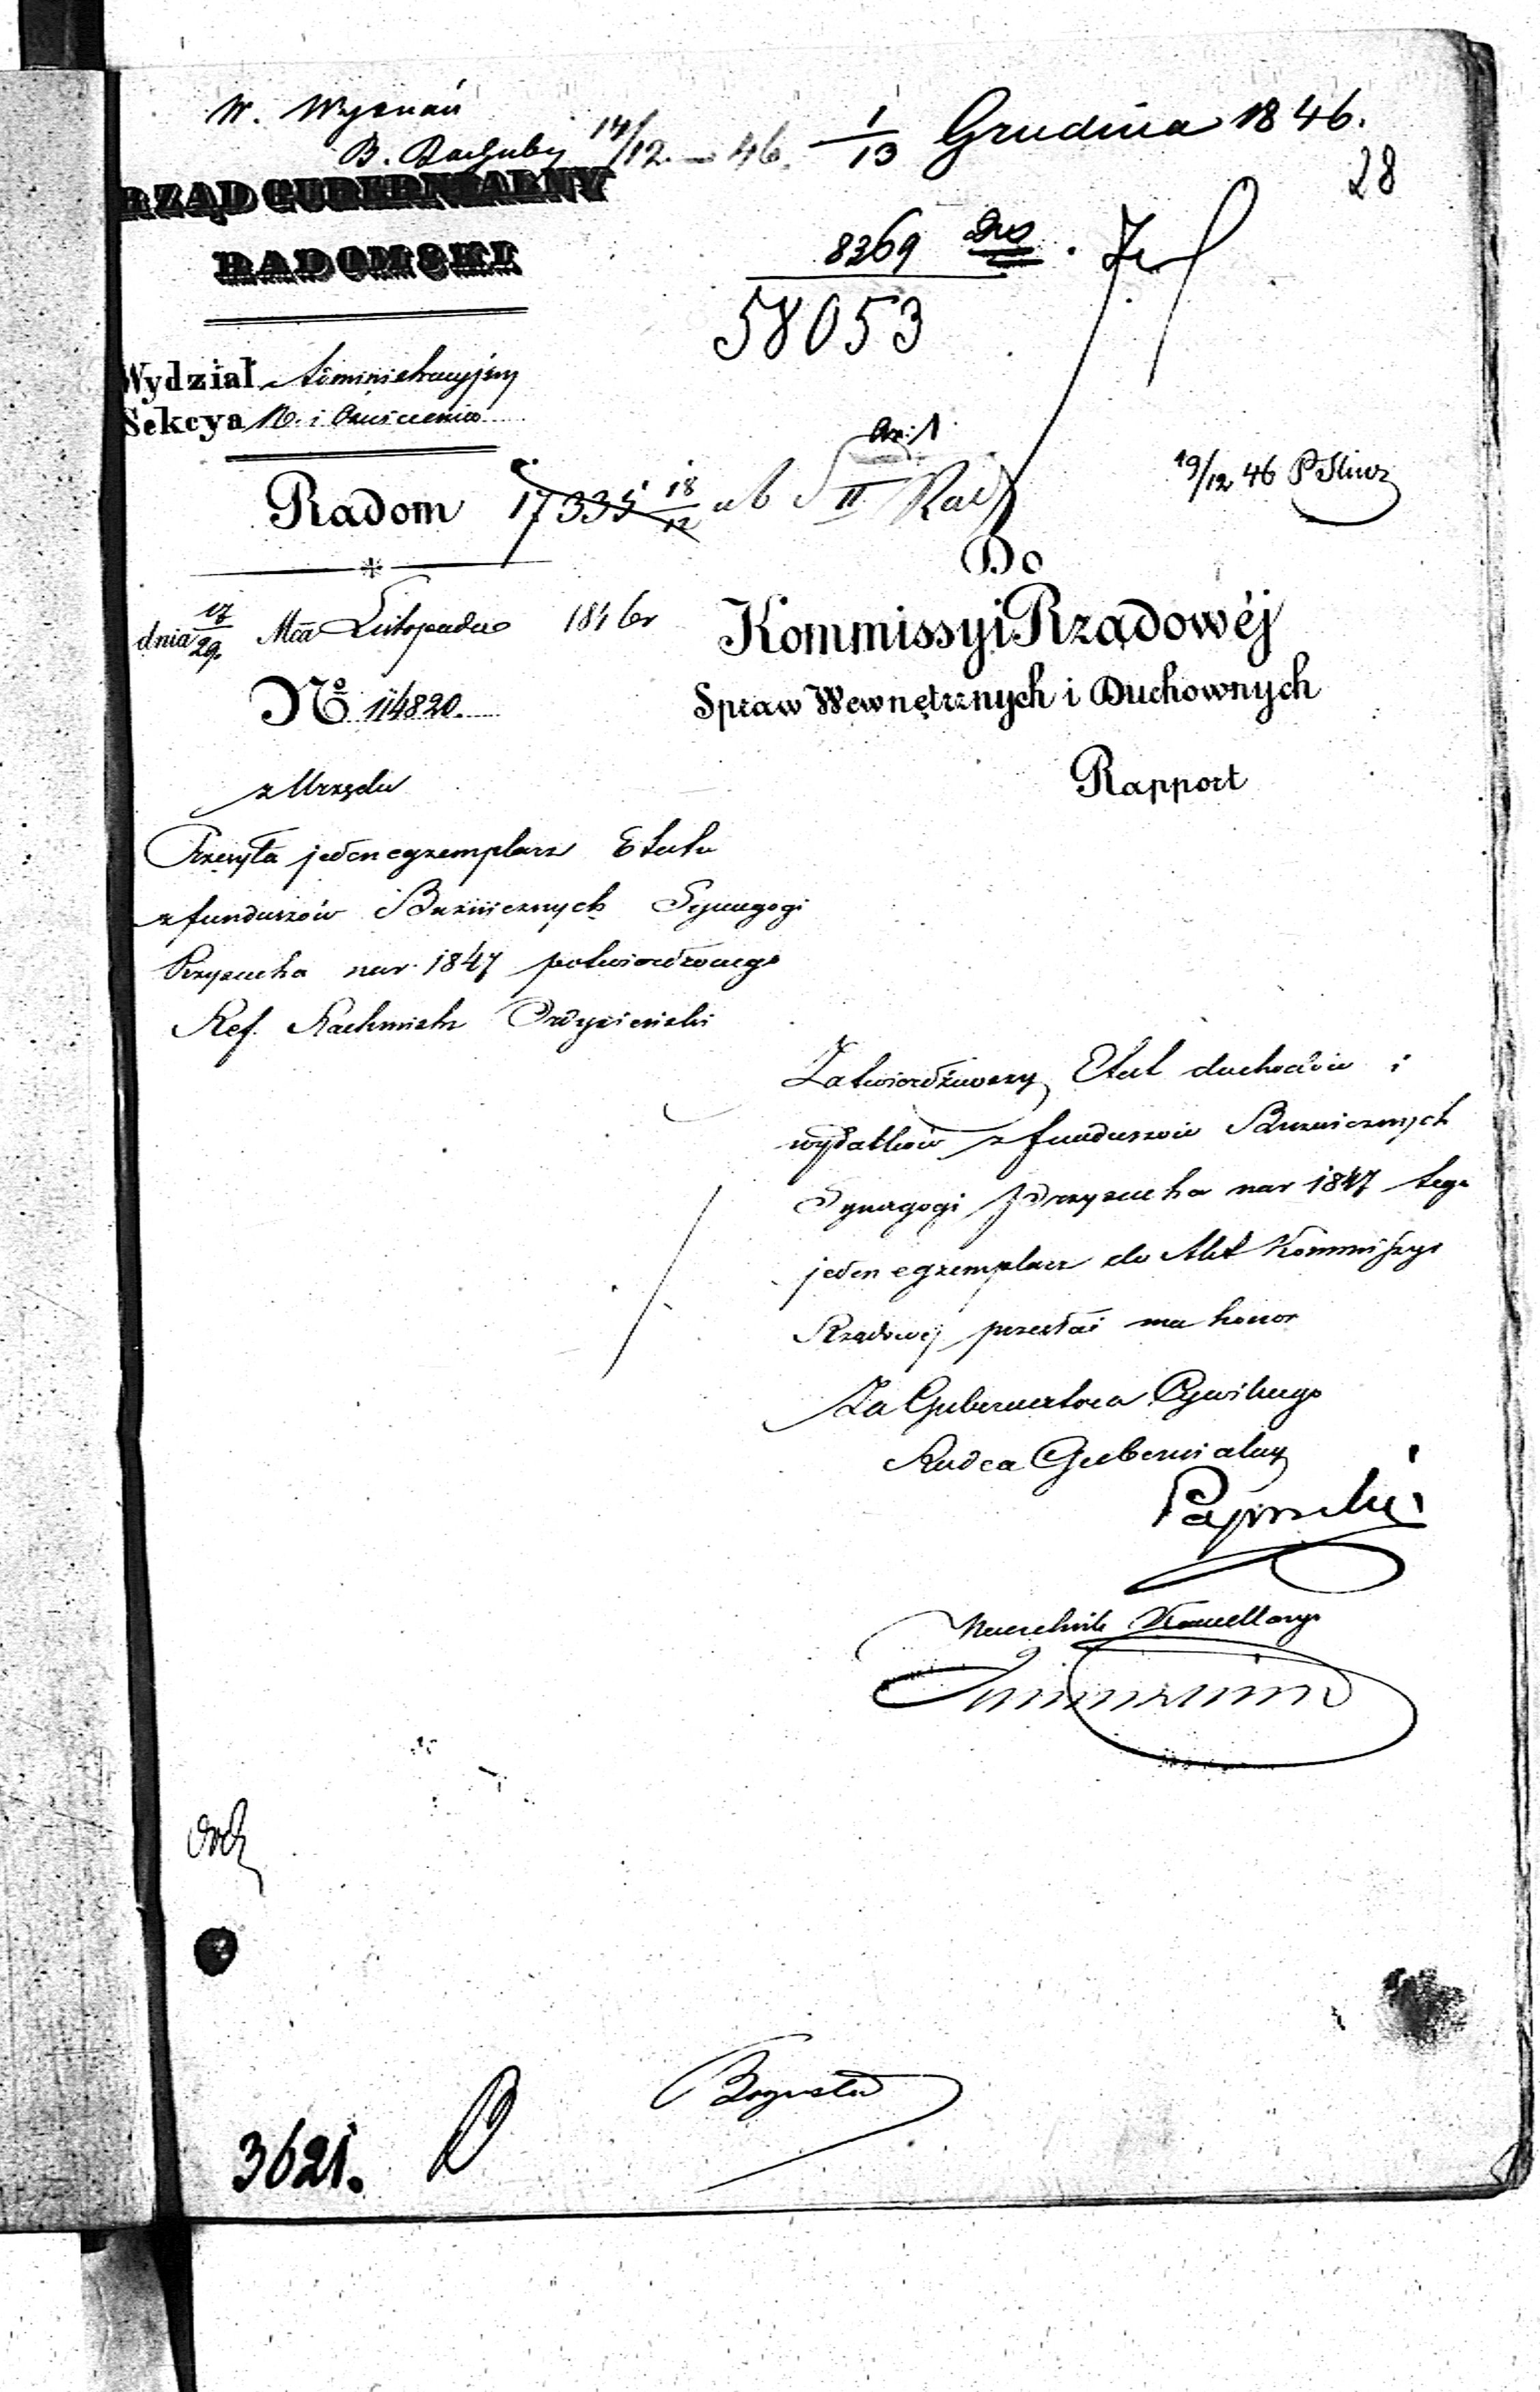 W. Wyznań
14/12 - 46. 1/13 Grudnia 1846.
28
RZĄD GUBERNIALNY
RADOMSKI
8369
58053
Wydział Administracyjny
Sekcya W. i Oświecenia
Radom 17335 18/12 ab II Rad
19/12 46
Do
dnia 17/29 Mca Listopada 1846r
Kommissyi Rządowéj
Spraw Wewnętrznych i Duchownych
No 114820.
Rapport
z Urzędu
Przesyła jeden egzemplarz Etatu
z funduszów Bużnicznych Synagogi
Przysucha na r. 1847 potwierdzonego
Ref. Rachmistrz
Zatwierdziwszy Etat dochodów i
wydatków z funduszów Bużnicznych
Synagogi Przysucha na r 1847 tego
jeden egzemplarz do Akt Kommissyi
Rządowej przesłać ma honor
Za Gubernatora Cywilnego
Radca Gubernialny
Naczelnik Kancellaryi
3621.